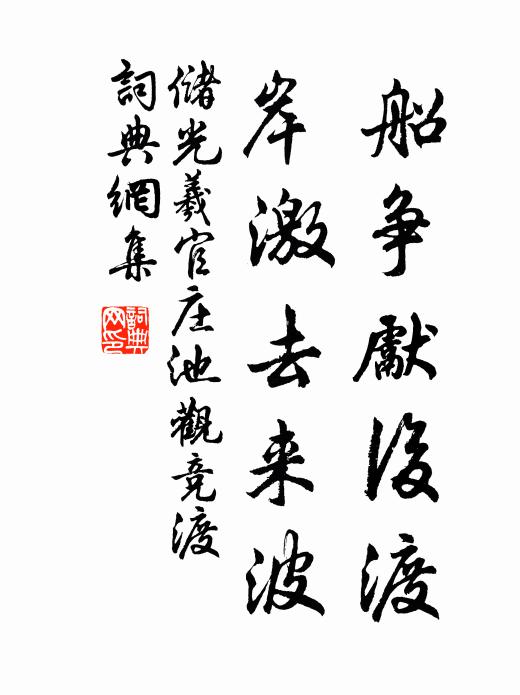 船争獻後渡
岸激去来波
儲光羲官庄池觀竞渡
詞典網集
詞典网印